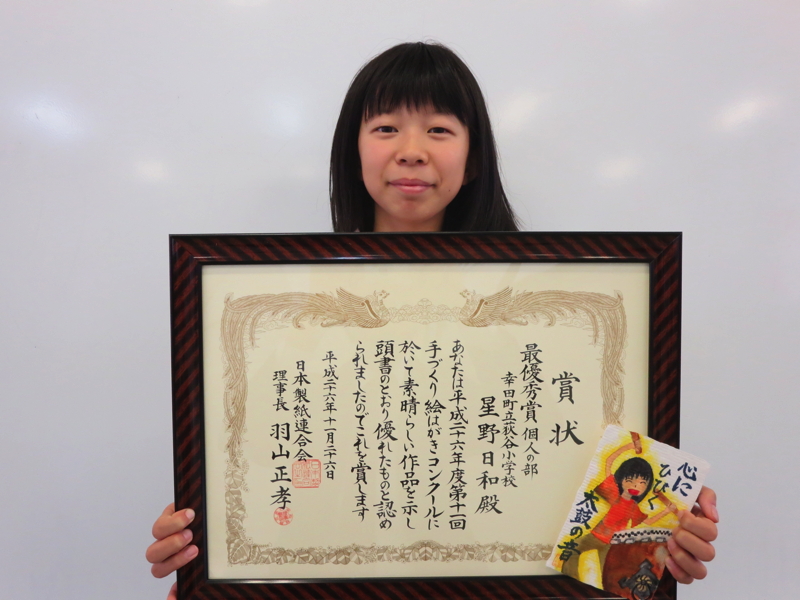 賞状
最優秀賞 個人の部
幸田町立荻谷小学校
星野日和殿
あなたは平成二十六年度第十一回
手づくり絵はがきコンクールに
於いて素晴らしい作品を示し
頭書のとおり優れたものと認め
られましたのでこれを賞します
平成二十六年十一月二十六日
日本製紙連合会
理事長 羽山正孝
心に
ひびく
太鼓の音